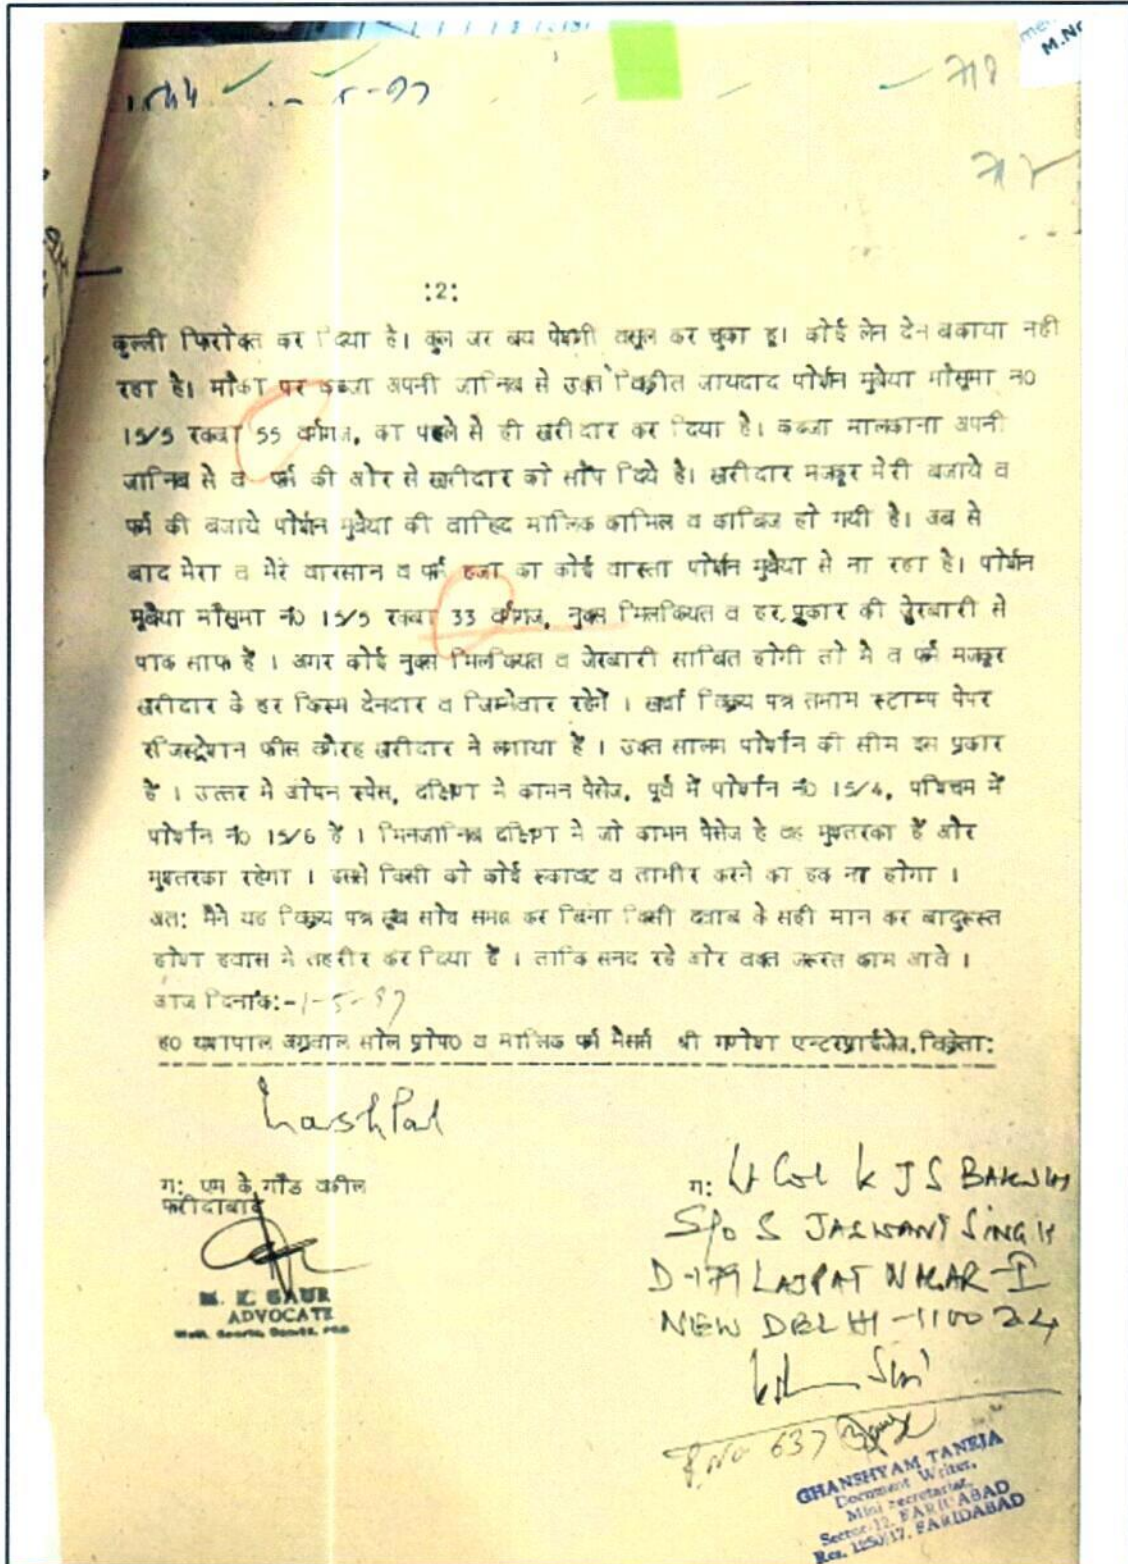 1544 - 5-97
M.No
:2:
कुल्ली फिरोक्त कर दिया है। कुल जर बय पेशगी वसूल कर चुका हू। कोई लेन देन बकाया नही
रहा है। मौका पर कब्जा अपनी जानिब से उक्त विक्रीत जायदाद पोर्शन मुबैया मौसूमा न0
15/5 रकबा 55 वर्गगज, का पहले से ही खरीदार कर दिया है। कब्जा मालकाना अपनी
जानिब से व फर्म की ओर से खरीदार को सौंप दिये है। खरीदार मजकूर मेरी बजाये व
फर्म की बजाये पोर्शन मुबैया की वाहिद मालिक कामिल व काबिज हो गयी है। अब से
बाद मेरा व मेरे वारसान व फर्म हजा का कोई वास्ता पोर्शन मुबैया से ना रहा है। पोर्शन
मुबैया मौसूमा नं0 15/5 रकबा 33 वर्गगज, नुक्स मिलकियत व हर प्रकार की जेरबारी से
पाक साफ है । अगर कोई नुक्स मिलकियत व जेरबारी साबित होगी तो मै व फर्म मजकूर
खरीदार के हर किस्म देनदार व जिम्मेवार रहेगें । खर्चा विक्रय पत्र तमाम स्टाम्प पेपर
रजिस्ट्रेशन फीस वगैरह खरीदार ने लगाया है । उक्त सालम पोर्शन की सीम इस प्रकार
है । उत्तर मे ओपन स्पेस, दक्षिण मे कामन पैसेज, पूर्व में पोर्शन नं0 15/4, पश्चिम में
पोर्शन नं0 15/6 है । मिनजानिब दक्षिण मे जो कामन पैसेज है वह मुश्तरका है और
मुश्तरका रहेगा । इसमे किसी को कोई रूकावट व तामीर करने का हक ना होगा ।
अत: मैने यह विक्रय पत्र खूब सोच समझ कर बिना किसी दवाब के सही मान कर बादुरूस्त
होश हवास मे तहरीर कर दिया है । ताकि सनद रहे और वक्त जरूरत काम आवे ।
आज दिनांक:-1-5-97
ह0 यशपाल अग्रवाल सोल प्रोप0 व मालिक फर्म मैसर्स श्री गणेश एन्टरप्राईजेज,विक्रेता:
YashPal
ग: एम के गौड वकील
फरीदाबाद
M. K. GAUR
ADVOCATE
ग: Lt Col K J S BAKSHI
S/o S JASWANT SINGH
D-179 LAJPAT NAGAR-I
NEW DELHI-110024
R No 637
GHANSHYAM TANEJA
Document Writer,
Mini Secretariat,
Sector-12, FARIDABAD
Res. 1250/17, FARIDABAD